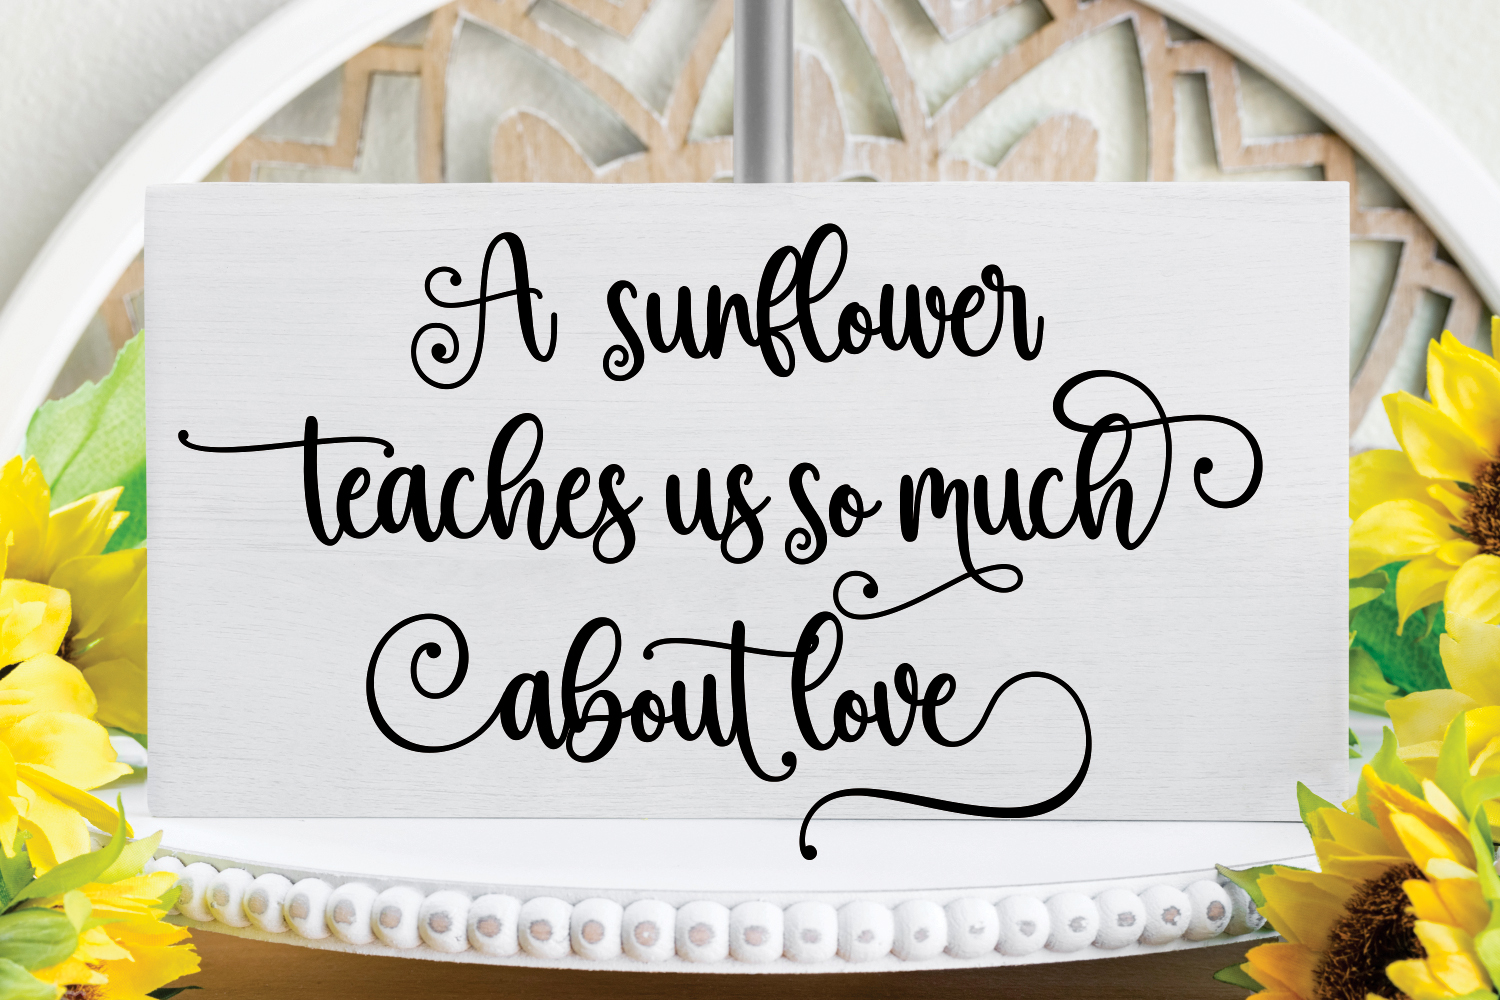 A sunflower
teaches us so much
about love